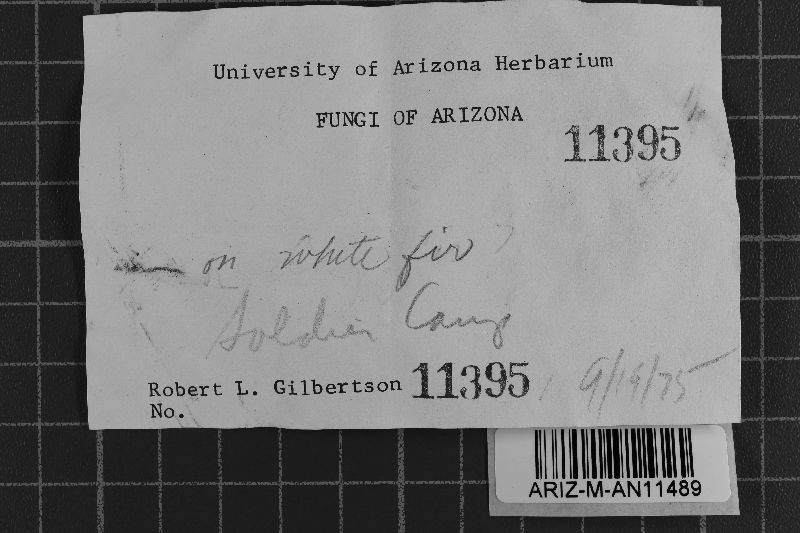 University of Arizona Herbarium
FUNGI OF ARIZONA
11395
on white fir
Soldier Camp
Robert L. Gilbertson 11395 9/19/75
No.
ARIZ-M-AN11489